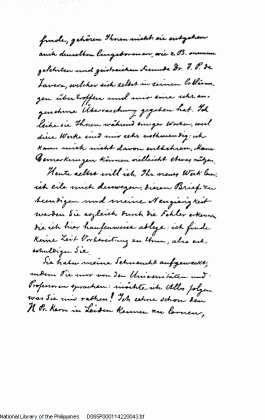 finde, gehören Ihnen nicht sie entgehen
auch denselben Eingeborenen, wie z.B. unserem
gelehrten und geistreichen Freunde Dr. T. P. de
Tavera, welcher sich selbst in seinen
gen übertroffen und mir eine sehr an-
genehme Überraschung gegeben hat. Ich
Ihnen während einiger Worten, weil
diese Werke sind mir sehr nothwendig: ich
kann mich nicht davon entbehren, kann
Bemerkungen können vielleicht etwas nützen.
Heute selbst will ich Ihr neues Werk lesen;
ich eile mich deswegen, diesen Brief zu
beendigen und meine Neugierigkeit
werden Sie sogleich durch die Fehler erkennen,
die ich hier haufenweise ablege. ich finde
keine Zeit Vorbereitung zu thun, also ent-
schuldigen Sie.
Sie haben meine Sehnsucht aufgeweckt,
indem Sie mir von den Universitäten und
Professoren sprachen: möchte ich Alles folgen
was Sie mir rathen! Ich sehne schon den
H. Pr. Kern in Leiden kennen zu lernen,
National Library of the Philippines D06SF00011422004(3).tif